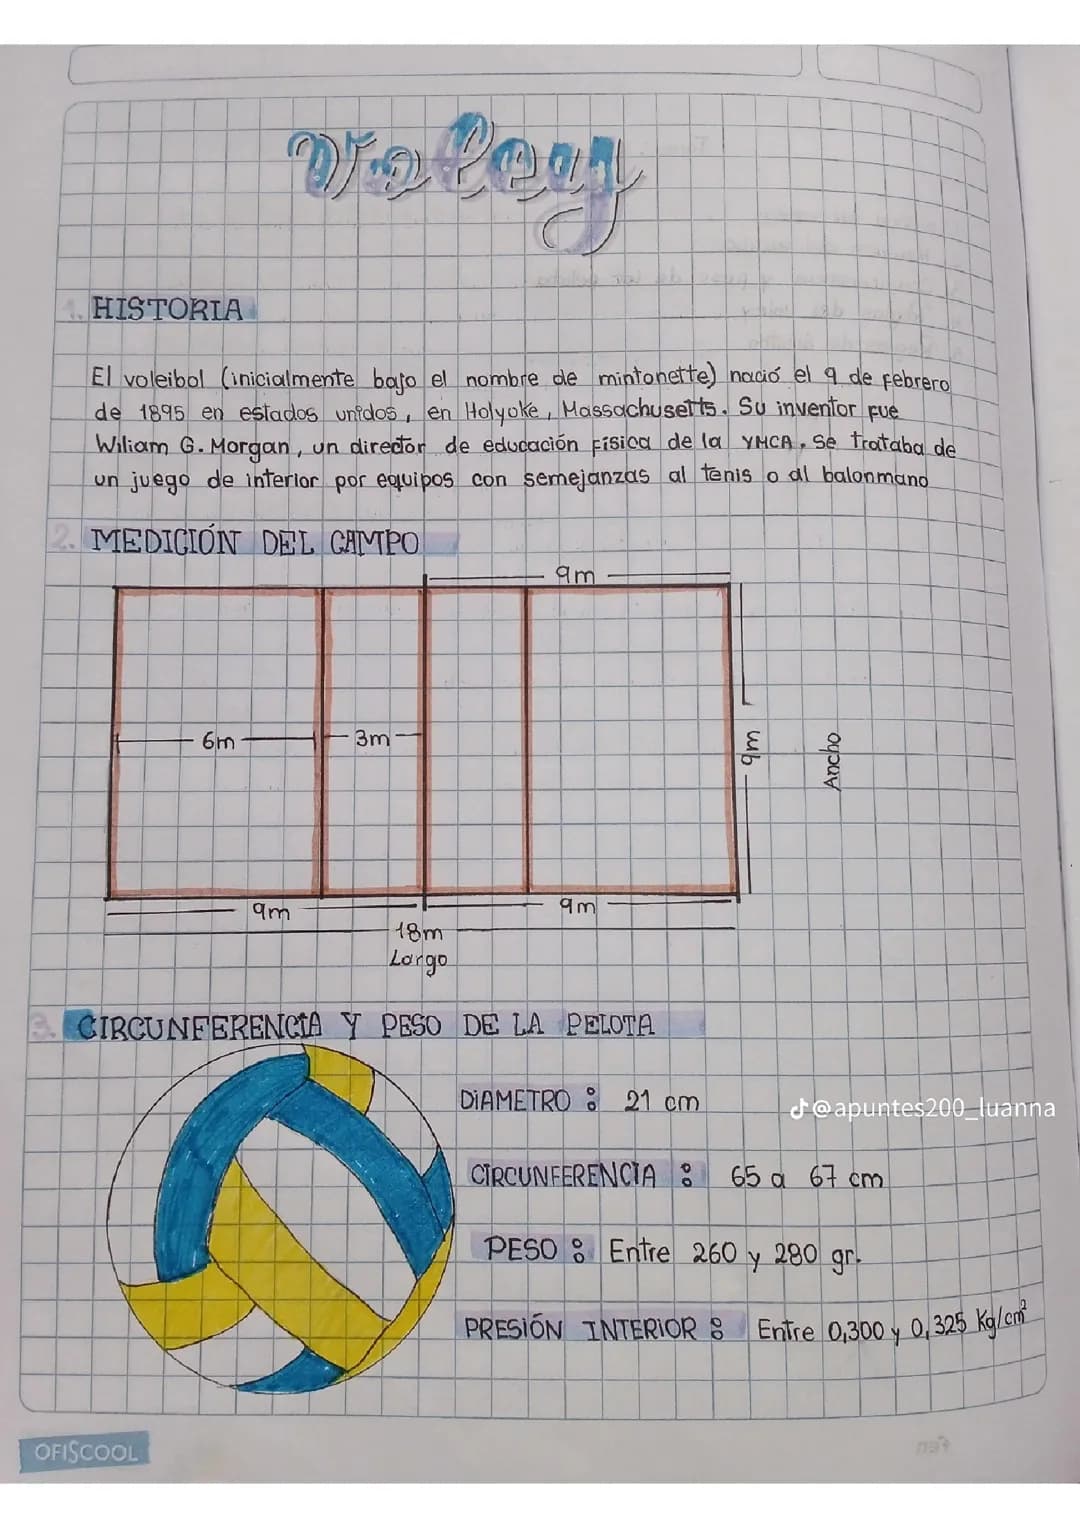 Voley
1. HISTORIA
El voleibol (inicialmente bajo el nombre de mintonette) nació el 9 de febrero
de 1895 en estados unidos, en Holyoke, Massachusetts. Su inventor fue
Wiliam G. Morgan, un director de educación física de la YMCA. Se trataba de
un juego de interior por equipos con semejanzas al tenis o al balonmano
2. MEDICIÓN DEL CAMPO
9m
6m 3m
9m
Ancho
9m 9m
18m
Largo
3. CIRCUNFERENCIA Y PESO DE LA PELOTA
DIAMETRO: 21 cm
@apuntes200_luanna
CIRCUNFERENCIA: 65 a 67 cm
PESO: Entre 260 y 280 gr.
PRESIÓN INTERIOR: Entre 0,300 y 0,325 Kg/cm²
OFISCOOL